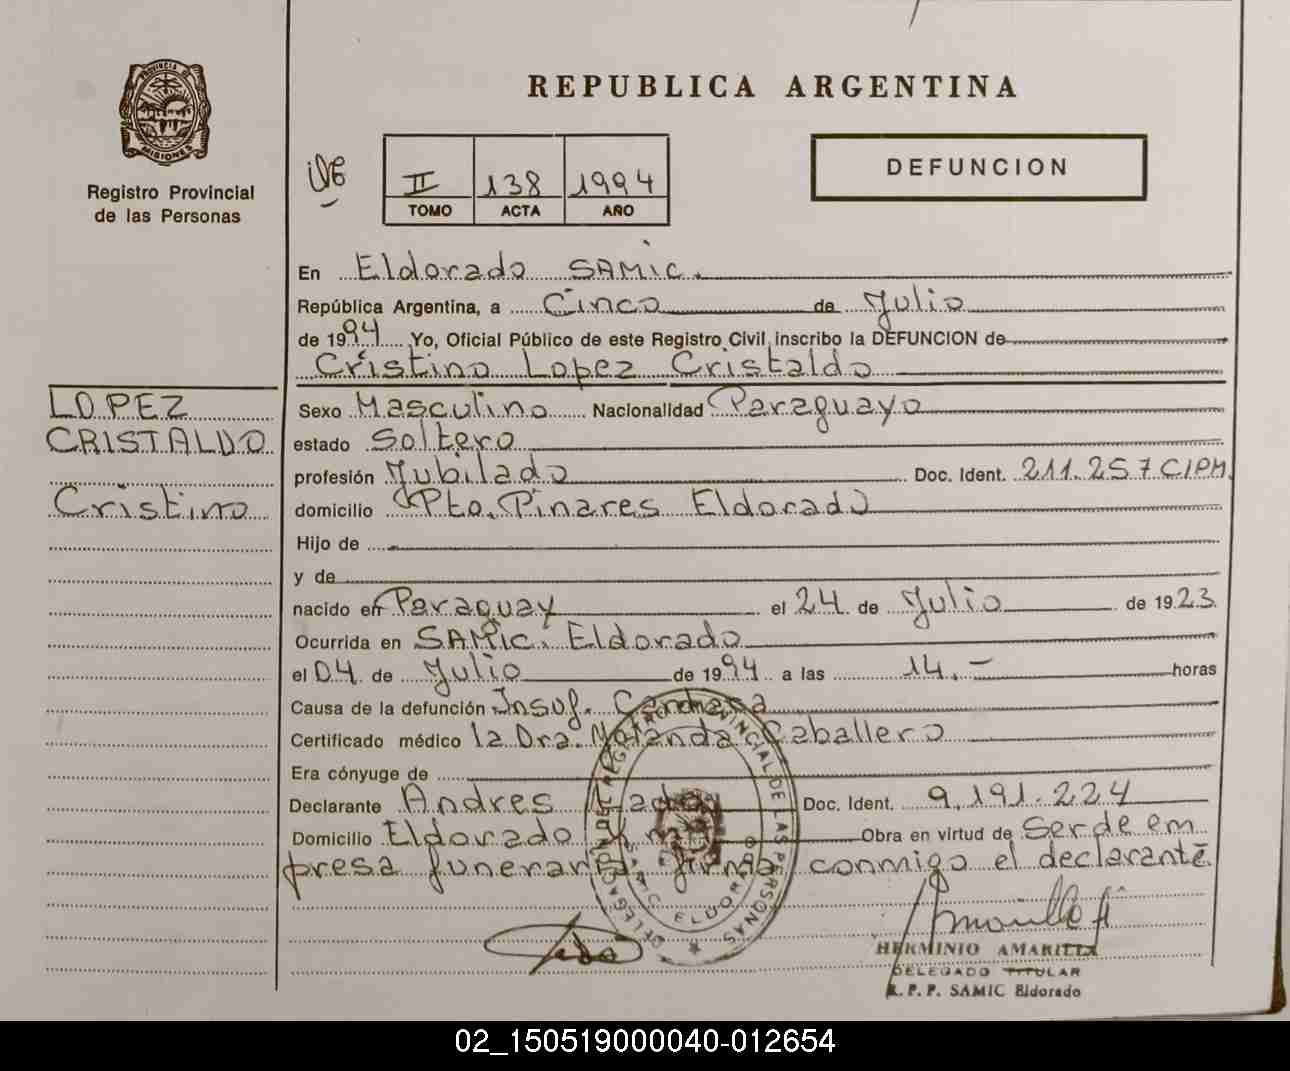 REPUBLICA ARGENTINA
PROVINCIA DE
MISIONES
Registro Provincial
de las Personas
II 138 1994
TOMO ACTA AÑO
DEFUNCION
En Eldorado SAMIC.
República Argentina, a Cinco de Julio
de 1994 Yo, Oficial Público de este Registro Civil inscribo la DEFUNCION de
Cristino Lopez Cristaldo
LOPEZ
CRISTALDO
Cristino
Sexo Masculino Nacionalidad Paraguayo
estado Soltero
profesión Jubilado Doc. Ident. 211.257 CIPM.
domicilio Pto. Pinares Eldorado
Hijo de
y de
nacido en Paraguay el 24 de Julio de 1923
Ocurrida en SAMIC. Eldorado
el 04 de Julio de 1994 a las 14.- horas
Causa de la defunción Insuf. Cardiaca
Certificado médico la Dra. Yolanda Caballero
Era cónyuge de
Declarante Andres Doc. Ident. 9.191.224
Domicilio Eldorado Obra en virtud de Ser de em
presa funeraria firma conmigo el declarante
DELEGACION DEL REGISTRO PROVINCIAL DE LAS PERSONAS
SAMIC ELDORADO
HERMINIO AMARILLA
DELEGADO TITULAR
R. P. P. SAMIC Eldorado
02_150519000040-012654